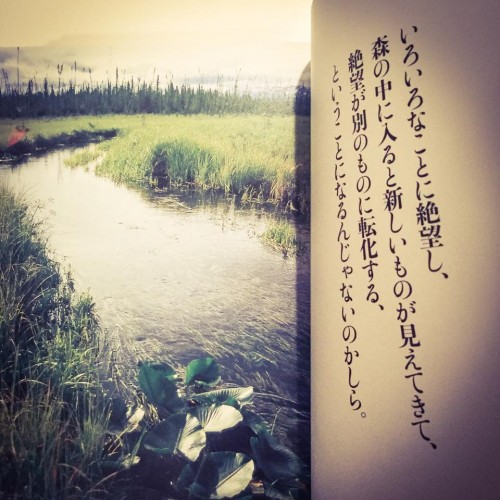 いろいろなことに絶望し、
森の中に入ると新しいものが見えてきて、
絶望が別のものに転化する、
ということになるんじゃないのかしら。